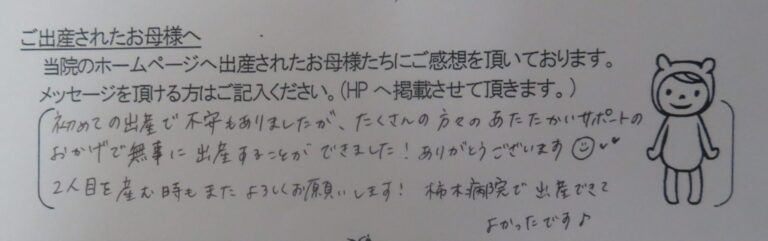 ご出産されたお母様へ
当院のホームページへ出産されたお母様たちにご感想を頂いております。
メッセージを頂ける方はご記入ください。(HPへ掲載させて頂きます。)
初めての出産で不安もありましたが、たくさんの方々のあたたかいサポートの
おかげで無事に出産することができました!ありがとうございます☺♥♥
2人目を産む時もまたよろしくお願いします! 柿木病院で出産できて
よかったです♪